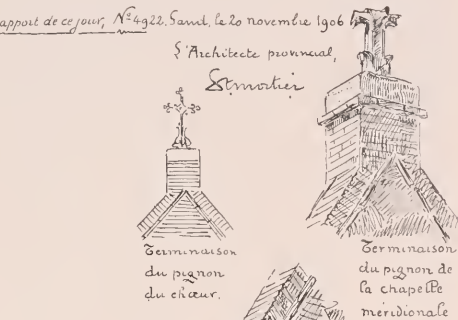 apport de ce jour, Nº 4922. Gand, le 20 novembre 1906
L'Architecte provincial,
Terminaison
du pignon
du chœur.
Terminaison
du pignon de
la chapelle
méridionale